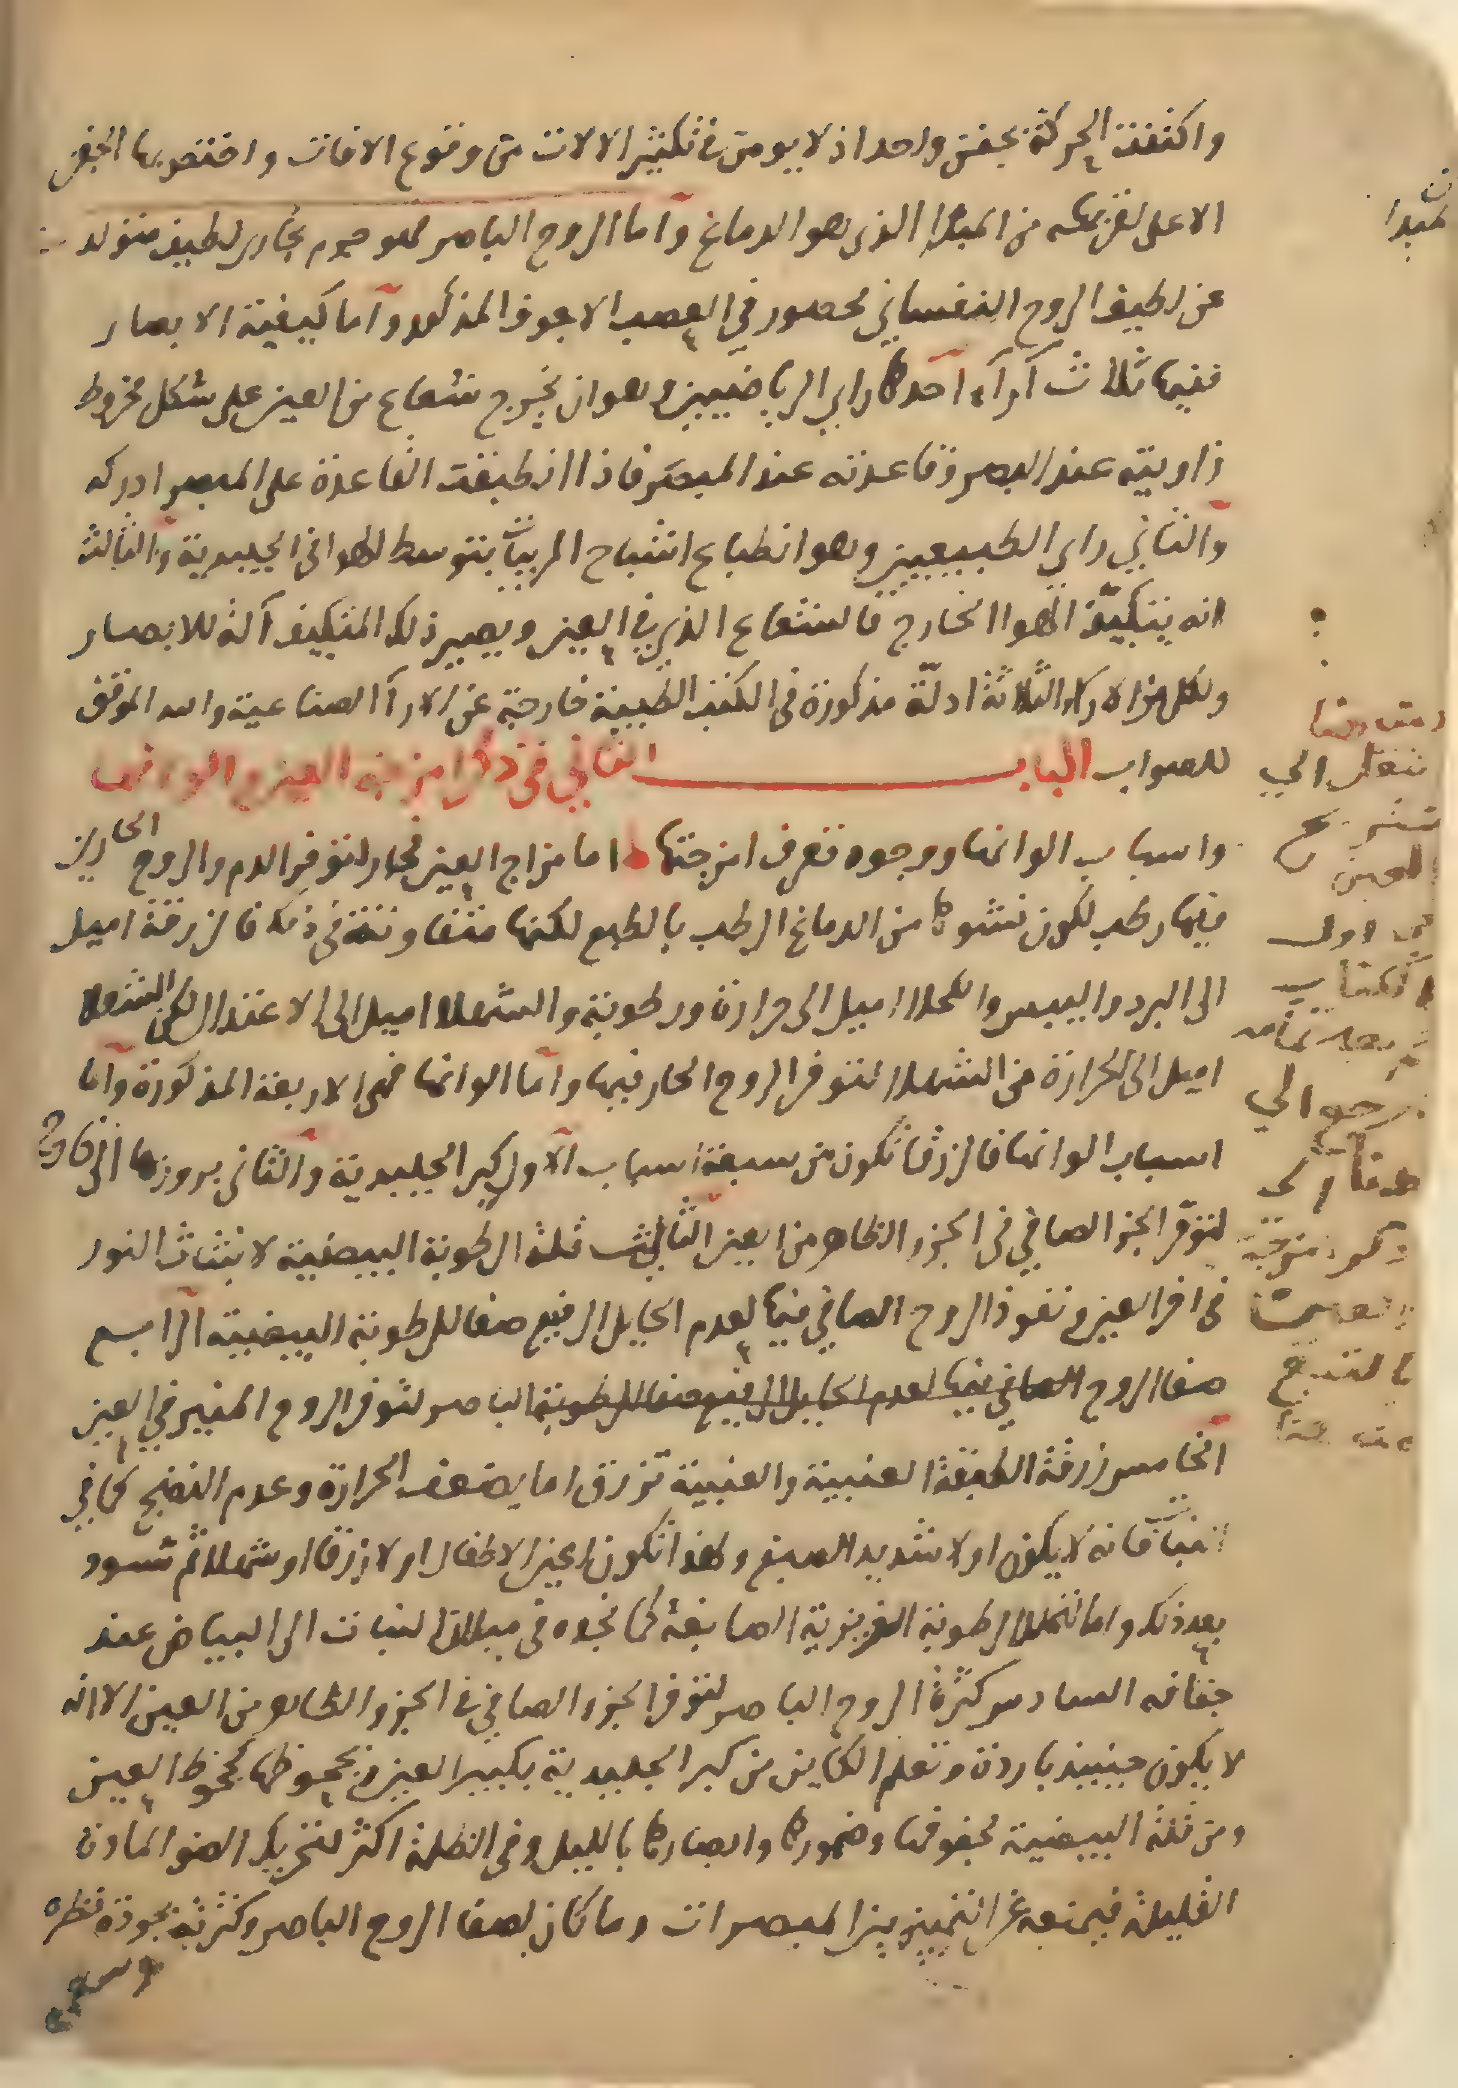 واكتفت الحركة بجفن واحد اذ لا يومن في تكثير الالات من وقوع الافات واختص بها الجفن
الاعلى لقربه من المبدا الذي هو الدماغ وآما الروح الباصر فهو جسم بخاري لطيف متولد
عن لطيف الروح النفساني محصور في العصب الاجوف المذكور وآما كيفية الابصار
ففيها ثلاث آرآء آحدها راي الرياضيين وهو ان يخرج شعاع من العين على شكل مخروط
زاويته عند البصر وقاعدته عند المبصَر فاذا انطبقت القاعدة على المبصر ادركه
وآلثاني راي الطبيعيين وهو انطباع اشباح المرييات بتوسط الهوا في الجليدية وآلثالث
انه يتكيّف الهوا الخارج بالشعاع الذي في العين ويصير ذلك المتكيف آلة للابصار
ولكل من الارآء الثلاثة ادلّة مذكورة في الكتب الطبية خارجة عن الارآ الصناعية والله الموفق
للصواب الباب الثاني في ذكر امزجة العين والوانها
واسباب الوانها ووجوه تعرف امزجتها اما مزاج العين فحار لتوفر الدم والروح الحارين
فيها رطب لكون نشوها من الدماغ الرطب بالطبع لكنها متفاوتة في ذلك فالزرقة اميل
الى البرد واليبس والكحلا اميل الى حرارة ورطوبة والشهلا اميل الى الاعتدال لكن الشعلا
اميل الى الحرارة من الشهلا لتوفر الروح الحار فيها وآما الوانها فهى الاربعة المذكورة وآما
اسباب الوانها فالزرقا تكون من سبعة اسباب الآول كبر الجليدية وآلثانى بروزها الى خارج
لتوفّر الجز الصافي في الجزء الظاهر من العين الثالث قلة الرطوبة البيضية لانبثاث النور
في اخر العين ونفوذ الروح الصافي فيها لعدم الحايل الرفيع صفا للرطوبة البيضية الرآبع
صفا الروح الصافي فيها لعدم الحايل الرفيع صفا للرطوبة الباصر لتوفر الروح المنير في العين
آلخامس زرقة الطبقة العنبية والعنبية تزرق اما بضعف الحرارة وعدم النضج كما في
النبات فانه لا يكون اولا شديد الصبغ ولهذا تكون اعين الاطفال اولا زرقا او شهلا ثم تسود
بعد ذلك واما لتحلل الرطوبة الغريزية الصابغة كما نجده في ميلان النبات الى البياض عند
جفافه السادس كثرة الروح الباصر لتوفر الجزء الصافي في الجزو الظاهر من العين الا انه
لا يكون حينيذ باردة وتعلم الكاين من كبر الجليدية بكبر العين وبجحوظها بجحوظ العين
ومن قلة البيضية بجفوفها وضمورها وابصارها بالليل وفى الظلمة اكثر لتحريك الضو المادة
القليلة فيمنعه عن التمييز بين المبصرات وما كان لصفا الروح الباصر وكثرته بجودة نظره
المبدا
تنقل الي
تشريح
العين
في اول
الكتاب
بعد تمامه
ترجع الي
هنا الي
ذكر امزجة
العين